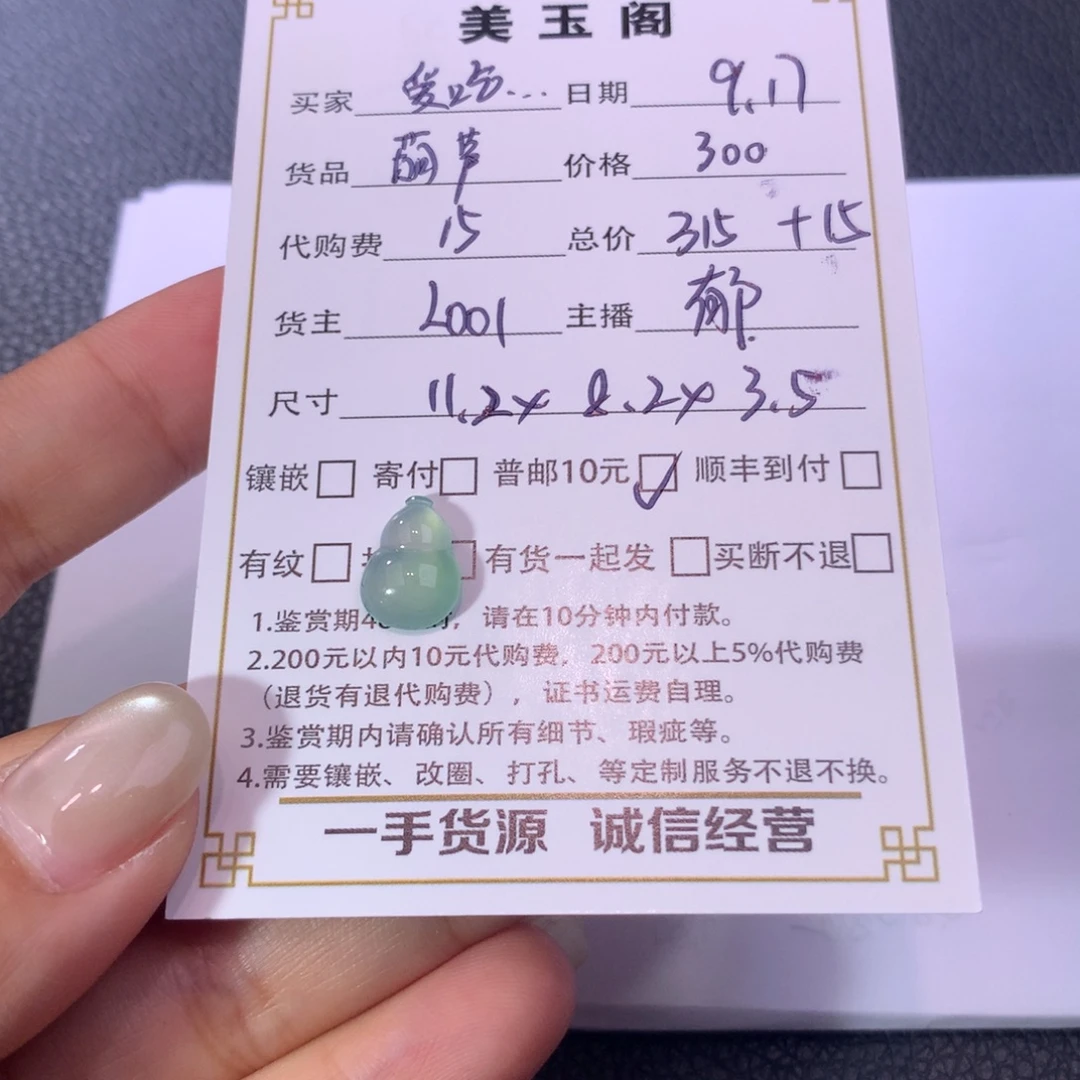 美玉阁
买家 爱吃... 日期 9.17
货品 葫芦 价格 300
代购费 15 总价 315 +15
货主 L001 主播 郁
尺寸 11.2x 8.2x 3.5
镶嵌 寄付 普邮10元 ✓ 顺丰到付
有纹 有货一起发 买断不退
1.鉴赏期4 ，请在10分钟内付款。
2.200元以内10元代购费，200元以上5%代购费
（退货有退代购费），证书运费自理。
3.鉴赏期内请确认所有细节、瑕疵等。
4.需要镶嵌、改圈、打孔、等定制服务不退不换。
一手货源 诚信经营